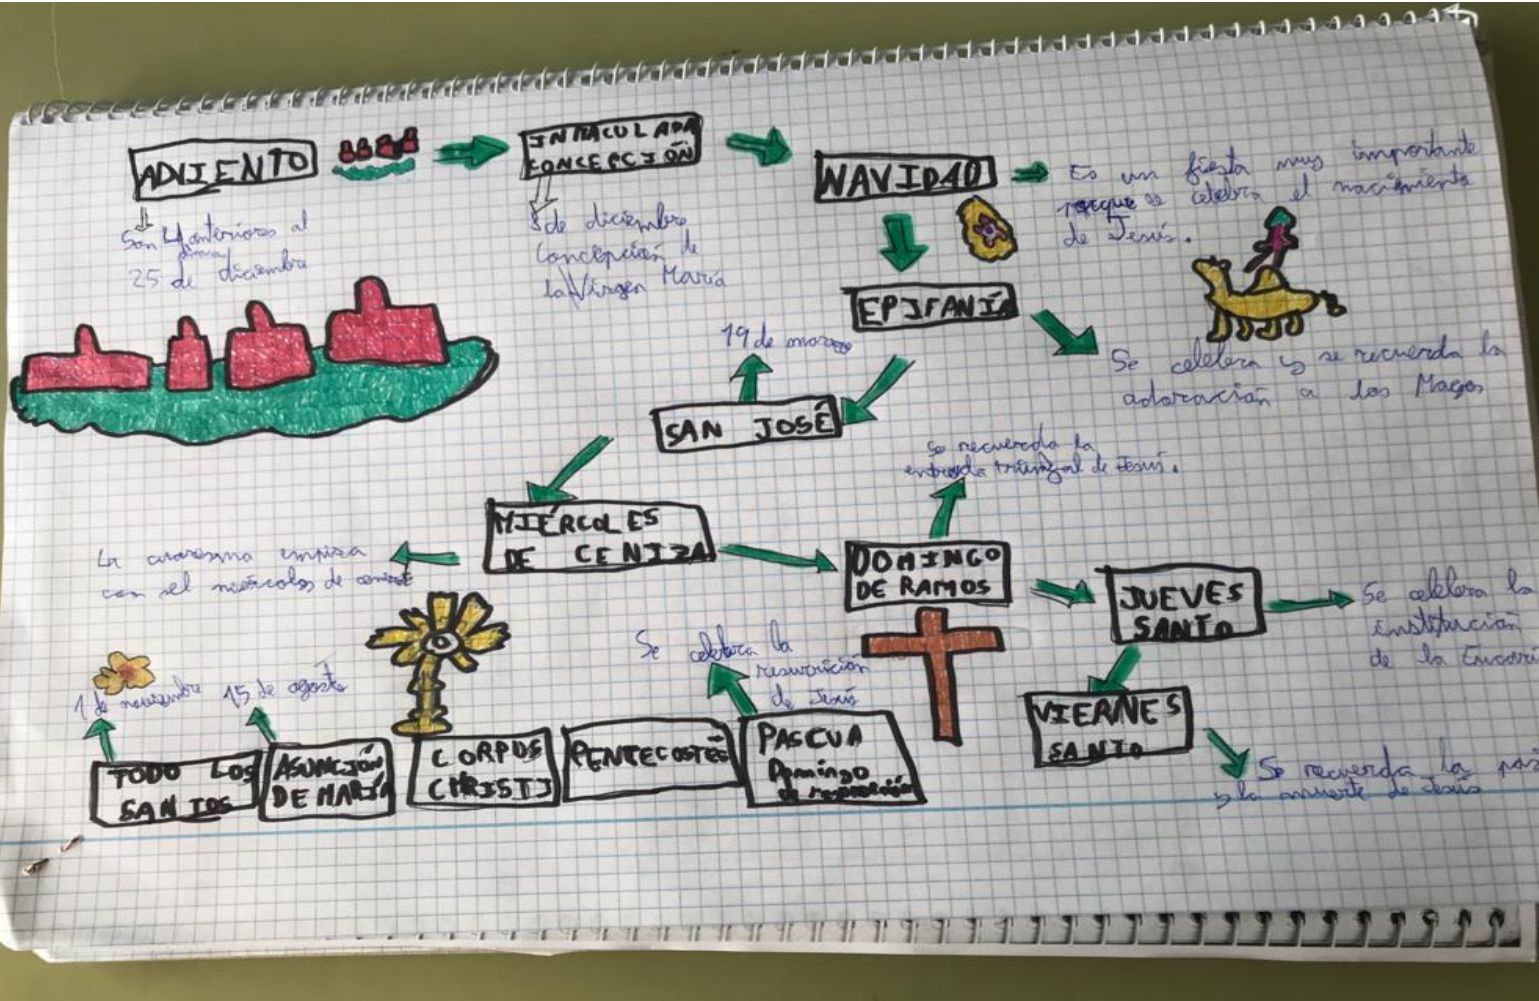 ADVIENTO
Son 4 anteriores al
25 de diciembre
INMACULADA
CONCEPCIÓN
8 de diciembre
Concepción de
la Virgen María
NAVIDAD
Es un fiesta muy importante
porque se celebra el nacimiento
de Jesús.
EPIFANÍA
Se celebra y se recuerda la
adoración a los Magos
19 de marzo
SAN JOSÉ
MIÉRCOLES
DE CENIZA
La cuaresma empieza
con el miércoles de
se recuerda la
entrada triunfal de Jesús.
DOMINGO
DE RAMOS
JUEVES
SANTO
Se celebra la
institución
de la Eucari
VIERNES
SANTO
Se recuerda la pas
y la muerte de Jesús
Se celebra la
resurrición
de Jesús
PASCUA
Domingo
de
PENTECOSTÉS
CORPUS
CHRISTI
15 de agosto
ASUNCIÓN
DE MARÍA
1 de noviembre
TODO LOS
SANTOS